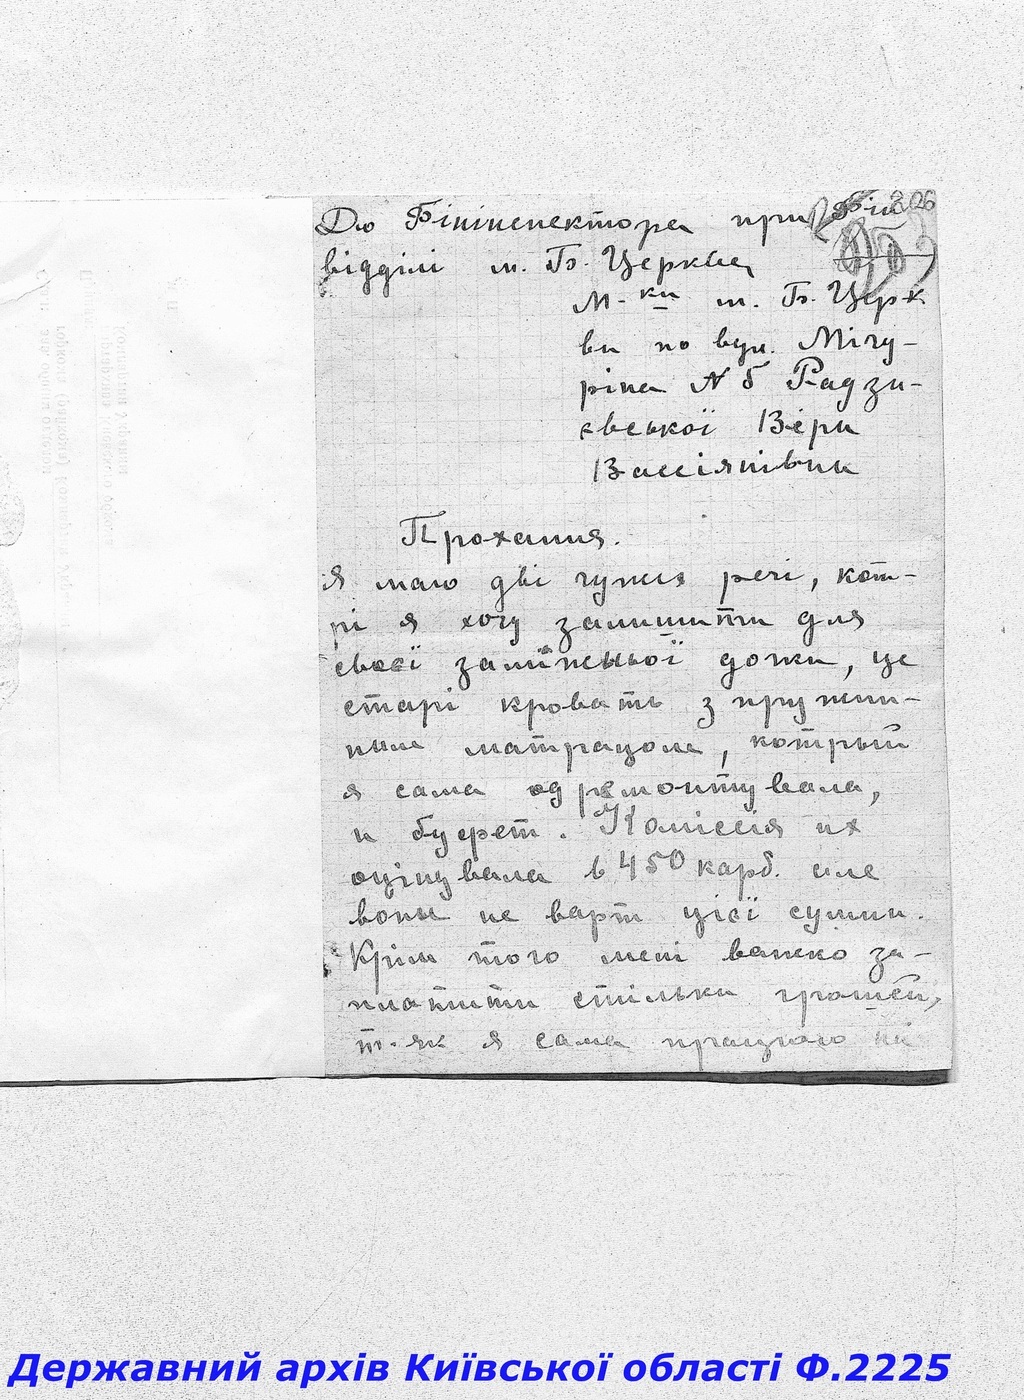 До Фінінспектора при Фін
206
відділі м. Б. Церква
М-ки м. Б. Церк
ви по вул. Мічу-
ріна № 6 Радзи-
євської Віри
Вассіянівни
Прохання.
Я маю дві чужия речі, кот-
рі я хочу залишити для
своєї заміжньої дочки, це
старі кровать з пружин-
ным матрацом, котрый
я сама одремонтувала,
и буфет. Коміссія их
оцінувала в 450 карб. але
воны не варт цієї сумми.
Крім того мені важко за-
платити стільки грошей,
т. як я сама працюю на
Державний архів Київської області Ф.2225